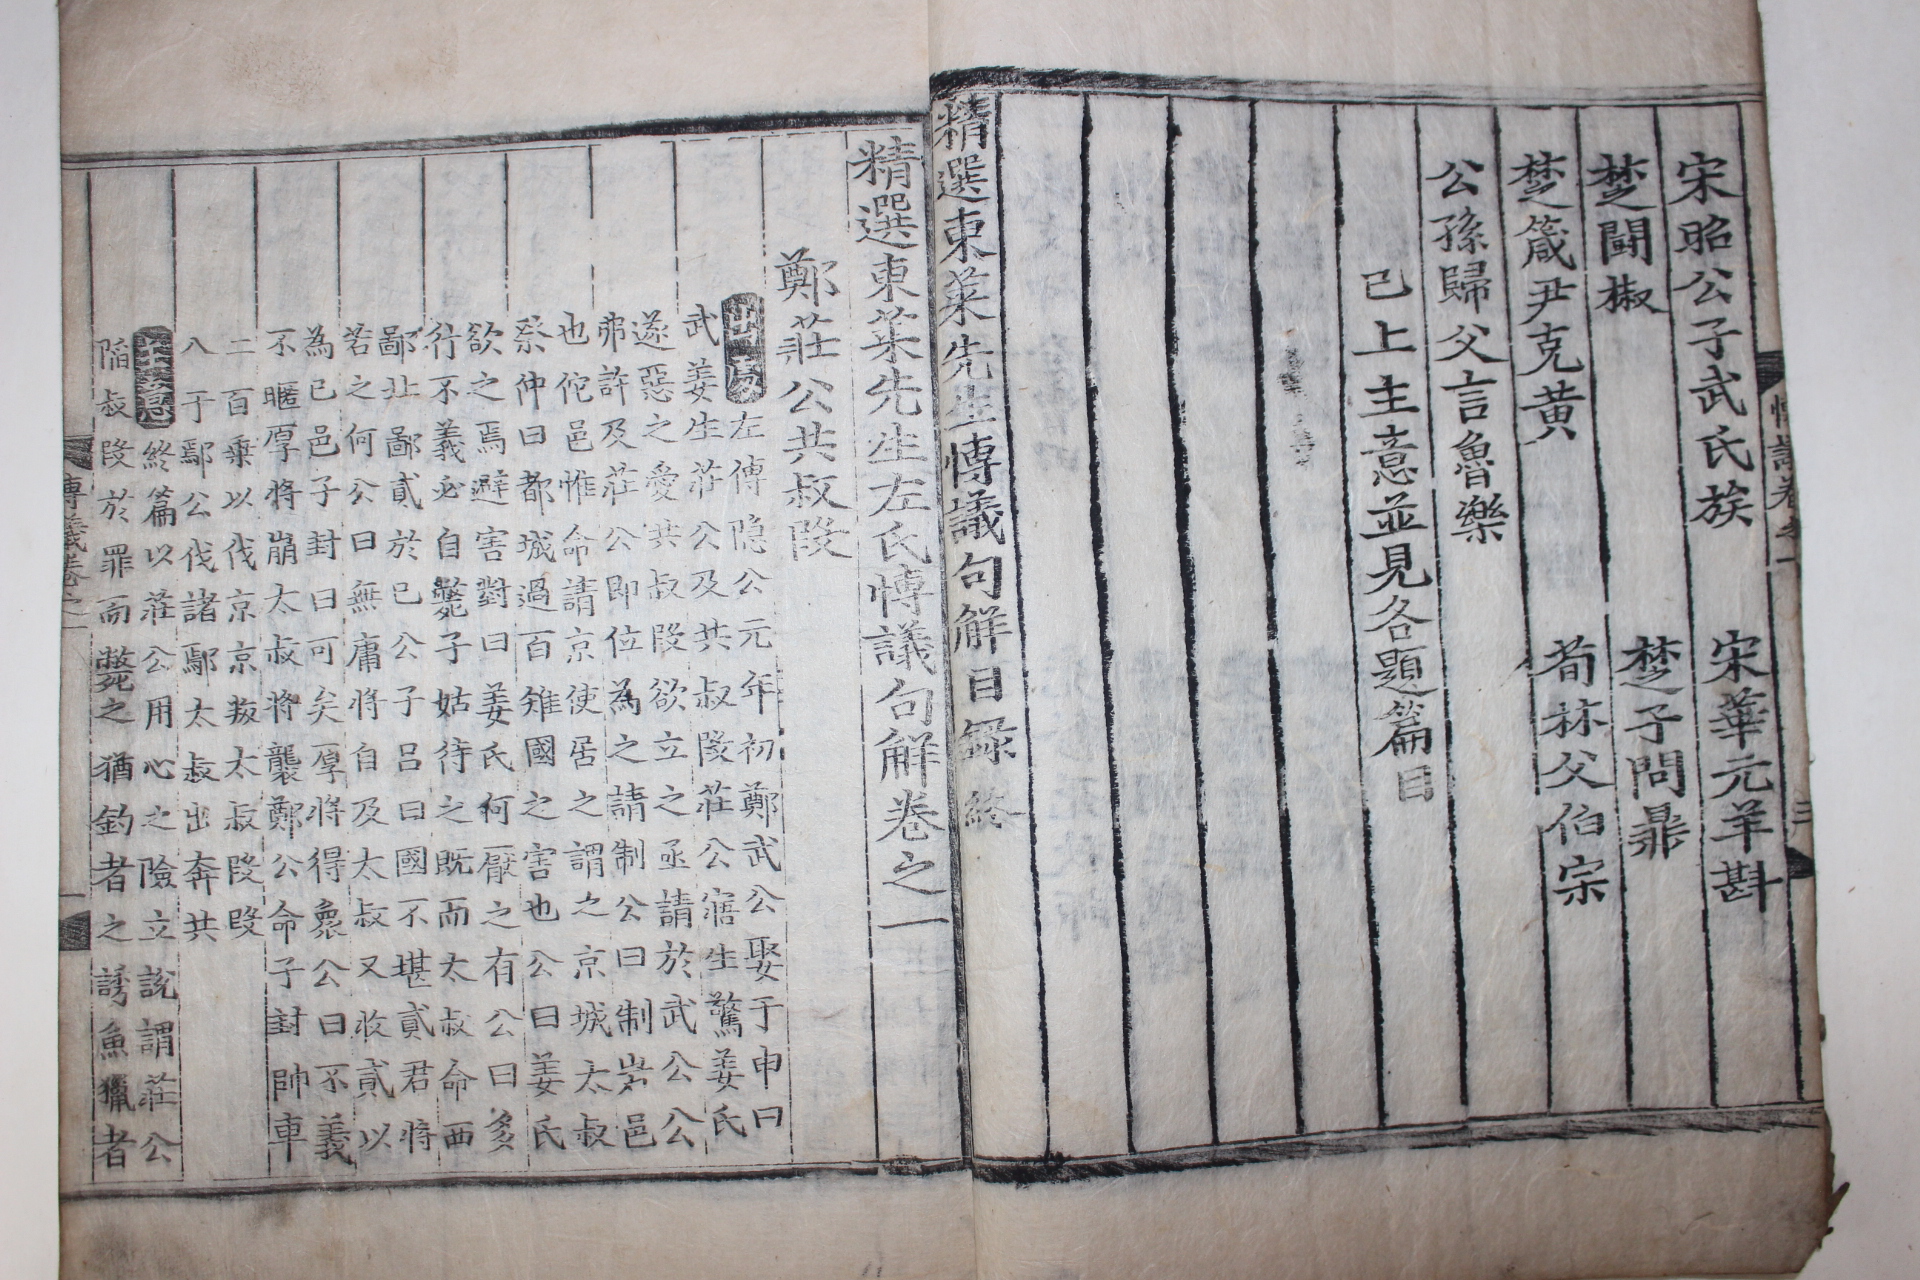 宋昭公子武氏族 宋華元羊斟
楚鬪椒 楚子問鼎
楚箴尹克黃 荀林父伯宗
公孫歸父言魯樂
已上主意並見各題篇目
精選東萊先生愽議句解目録終
精選東萊先生左氏愽議句解卷之一
鄭莊公共叔段
出處
左傳隐公元年初鄭武公娶于申曰
武姜生莊公及共叔段莊公寤生驚姜氏
遂惡之愛共叔段欲立之亟請於武公公
弗許及莊公即位為之請制公曰制岩邑
也佗邑惟命請京使居之謂之京城太叔
祭仲曰都城過百雉國之害也公曰姜氏
欲之焉避害對曰姜氏何厭之有公曰多
行不義必自斃子姑待之既而太叔命西
鄙北鄙貳於已公子呂曰國不堪貳君將
若之何公曰無庸將自及太叔又收貳以
為已邑子封曰可矣厚將得衆公曰不義
不暱厚將崩太叔將襲鄭公命子封帥車
二百乗以伐京京叛太叔段段
入于鄢公伐諸鄢太叔出奔共
主意
終篇以莊公用心之險立說謂莊公
陷叔段於罪而斃之猶釣者之誘魚獵者
傳義卷之一
一